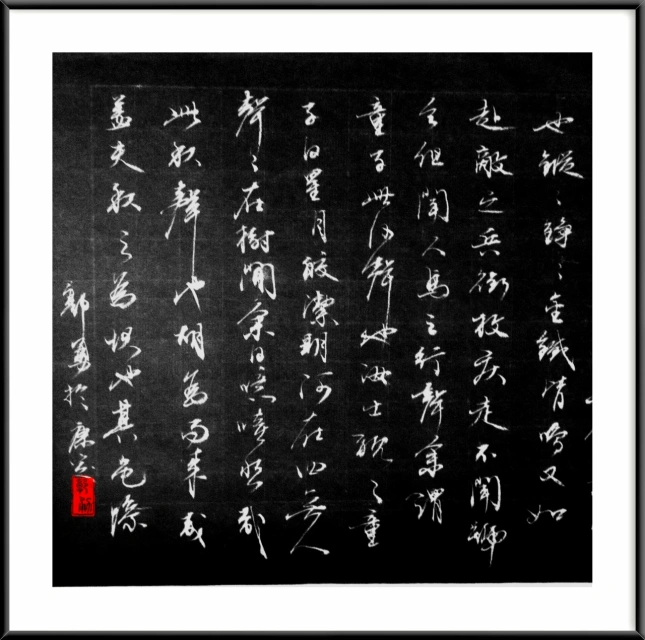 也鏦〻錚〻金鐵皆鳴又如
赴敵之兵銜枚疾走不聞號
令但聞人馬之行聲余謂
童子此何聲也汝出視之童
子曰星月皎潔明河在四無人
聲〻在樹間余曰噫嘻悲哉
此秋聲也胡為而來哉
蓋夫秋之為狀也其色慘
郭於康